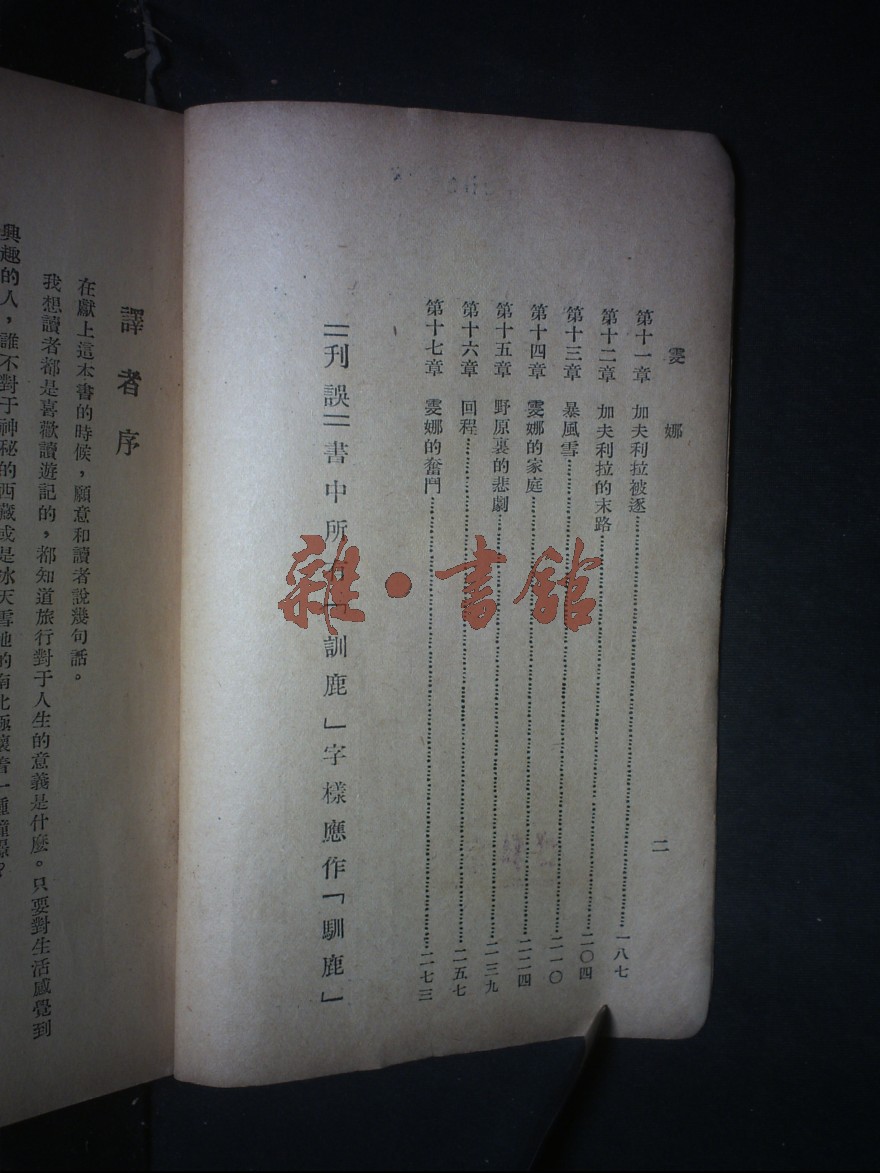 雯娜
二
第十一章 加夫利拉被逐……一八七
第十二章 加夫利拉的末路……二〇四
第十三章 暴風雪……二一〇
第十四章 雯娜的家庭……二二四
第十五章 野原裏的悲劇……二三九
第十六章 回程……二五七
第十七章 雯娜的奮鬥……二七三
＝刊誤＝書中所「訓鹿」字樣應作「馴鹿」
雜·書舘
譯者序
在獻上這本書的時候，願意和讀者說幾句話。
我想讀者都是喜歡讀遊記的，都知道旅行對于人生的意義是什麼。只要對生活感覺到
興趣的人，誰不對于神秘的西藏或是冰天雪地的南北極懷着一種憧憬？